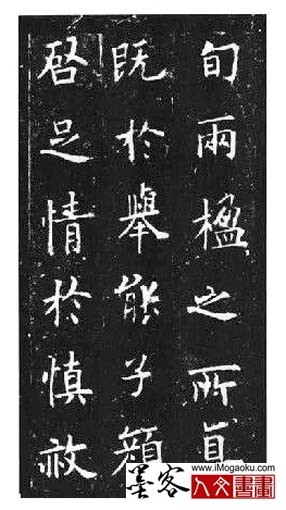 旬兩楹之所
既於舉能子顏
啓足情於慎
墨客
www.iMogaoku.com
人文書畫